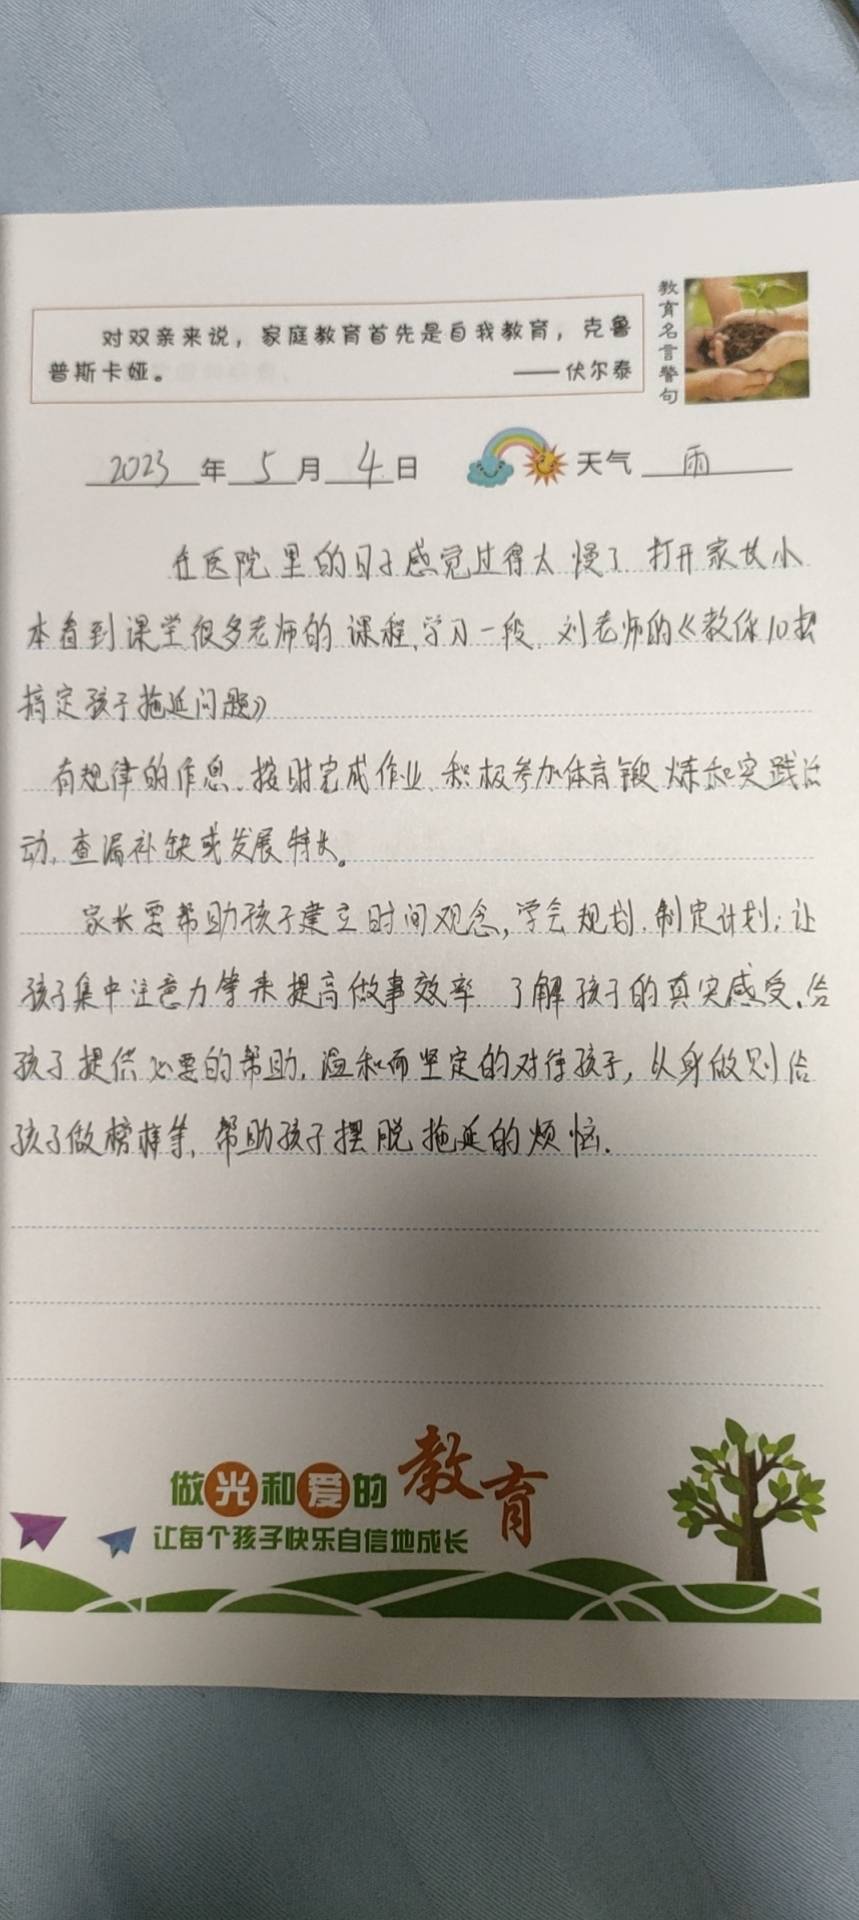 对双亲来说，家庭教育首先是自我教育，克鲁
普斯卡娅。 ——伏尔泰
教育名言警句
2023年5月4日 天气 雨
在医院里的日子感觉过得太慢了 打开家长小
本看到课堂很多老师的课程,学习一段.刘老师的《教你10招
搞定孩子拖延问题》
有规律的作息.按时完成作业.积极参加体育锻炼和实践活
动,查漏补缺或发展特长。
家长需帮助孩子建立时间观念,学会规划.制定计划;让
孩子集中注意力等来提高做事效率.了解孩子的真实感受.给
孩子提供必要的帮助.温和而坚定的对待孩子,以身做则给
孩子做榜样等,帮助孩子摆脱拖延的烦恼.
做光和爱的教育
让每个孩子快乐自信地成长